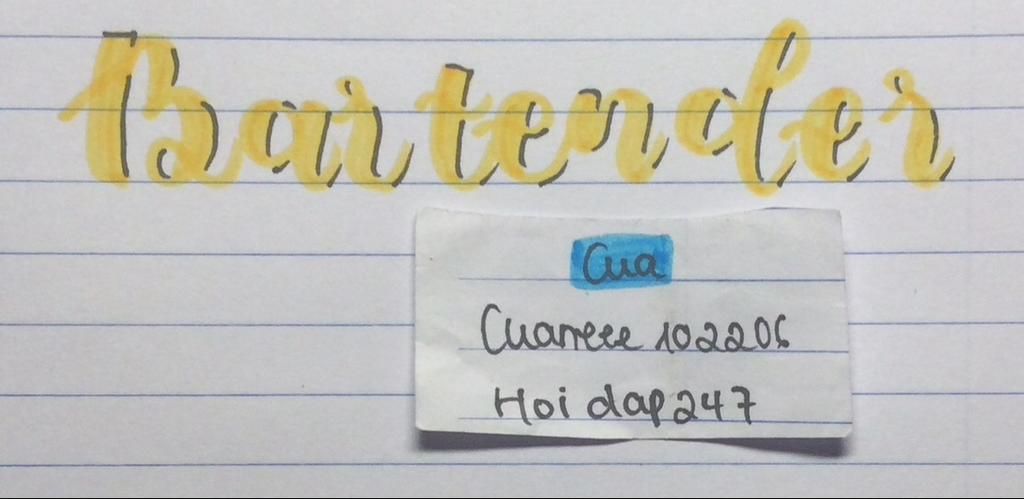 Bartender
Cua
Cuarreee 102206
Hoi dap247